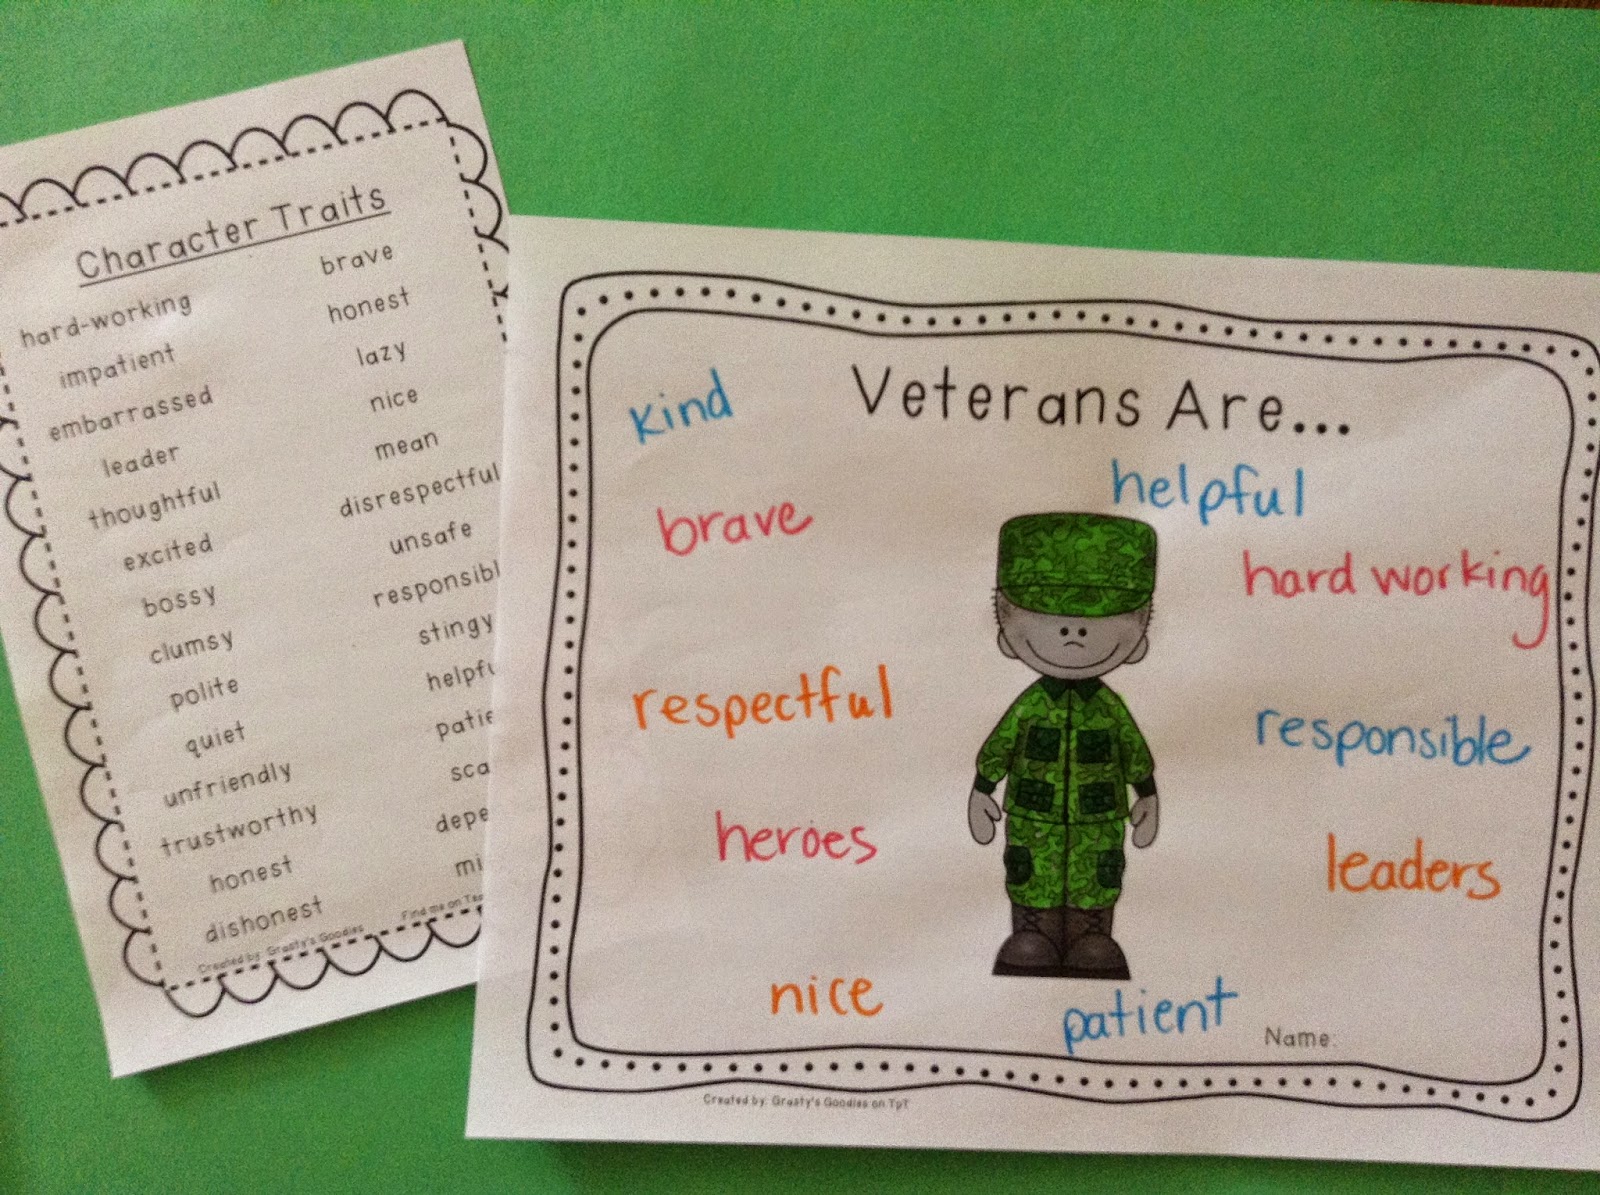 Character Traits
hard-working
impatient
embarrassed
leader
thoughtful
excited
bossy
clumsy
polite
quiet
unfriendly
trustworthy
honest
dishonest
brave
honest
lazy
nice
mean
disrespectful
unsafe
responsibl
stingy
helpfu
patie
sca
depe
mi
Created by: Grasty's Goodies
Find me on
Veterans Are...
kind
helpful
brave
hard working
respectful
responsible
heroes
leaders
nice
patient
Name:
Created by: Grasty's Goodies on TpT